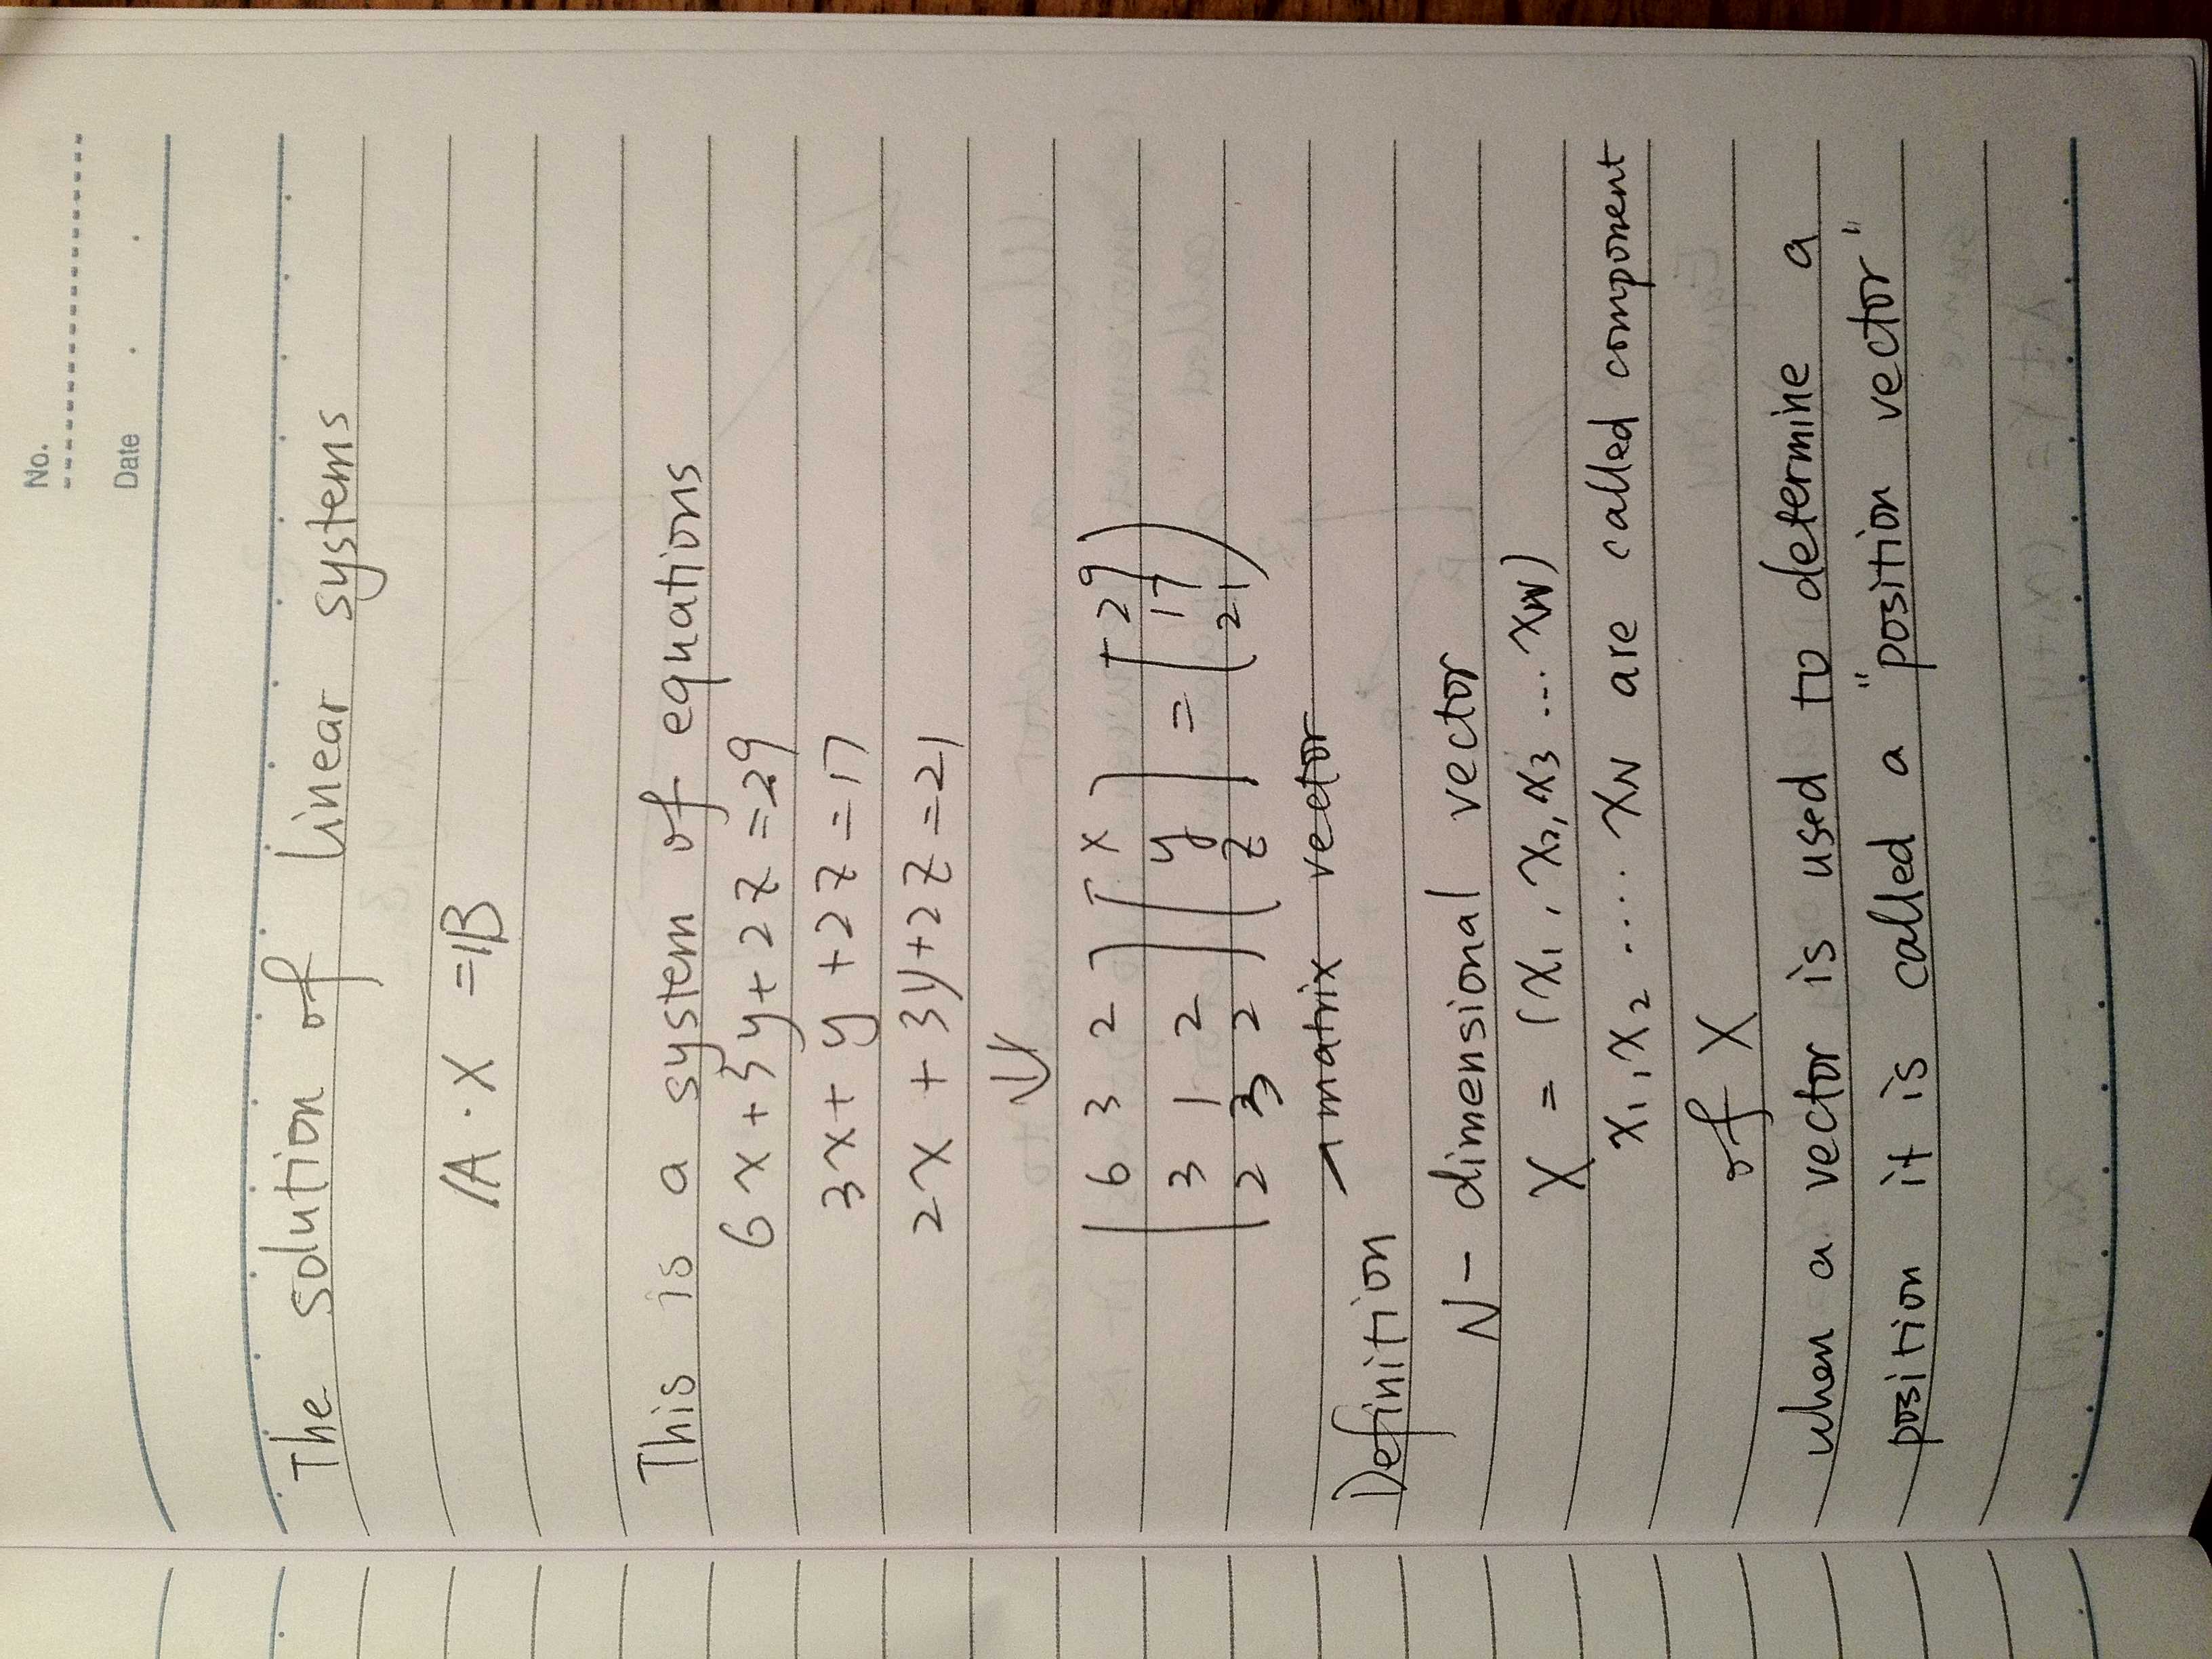 No.
Date . .
The solution of linear systems
A · X = B
This is a system of equations
6x + 3y + 2z = 29
3x + y + 2z = 17
2x + 3y + 2z = 21
↓
(6 3 2) (x) = (29)
(3 1 2) (y) = (17)
(2 3 2) (z) = (21)
matrix vector
Definition
N - dimensional vector
X = (x1, x2, x3 ... xN)
x1, x2 .... xN are called component
of X
when a vector is used to determine a
position it is called a "position vector"